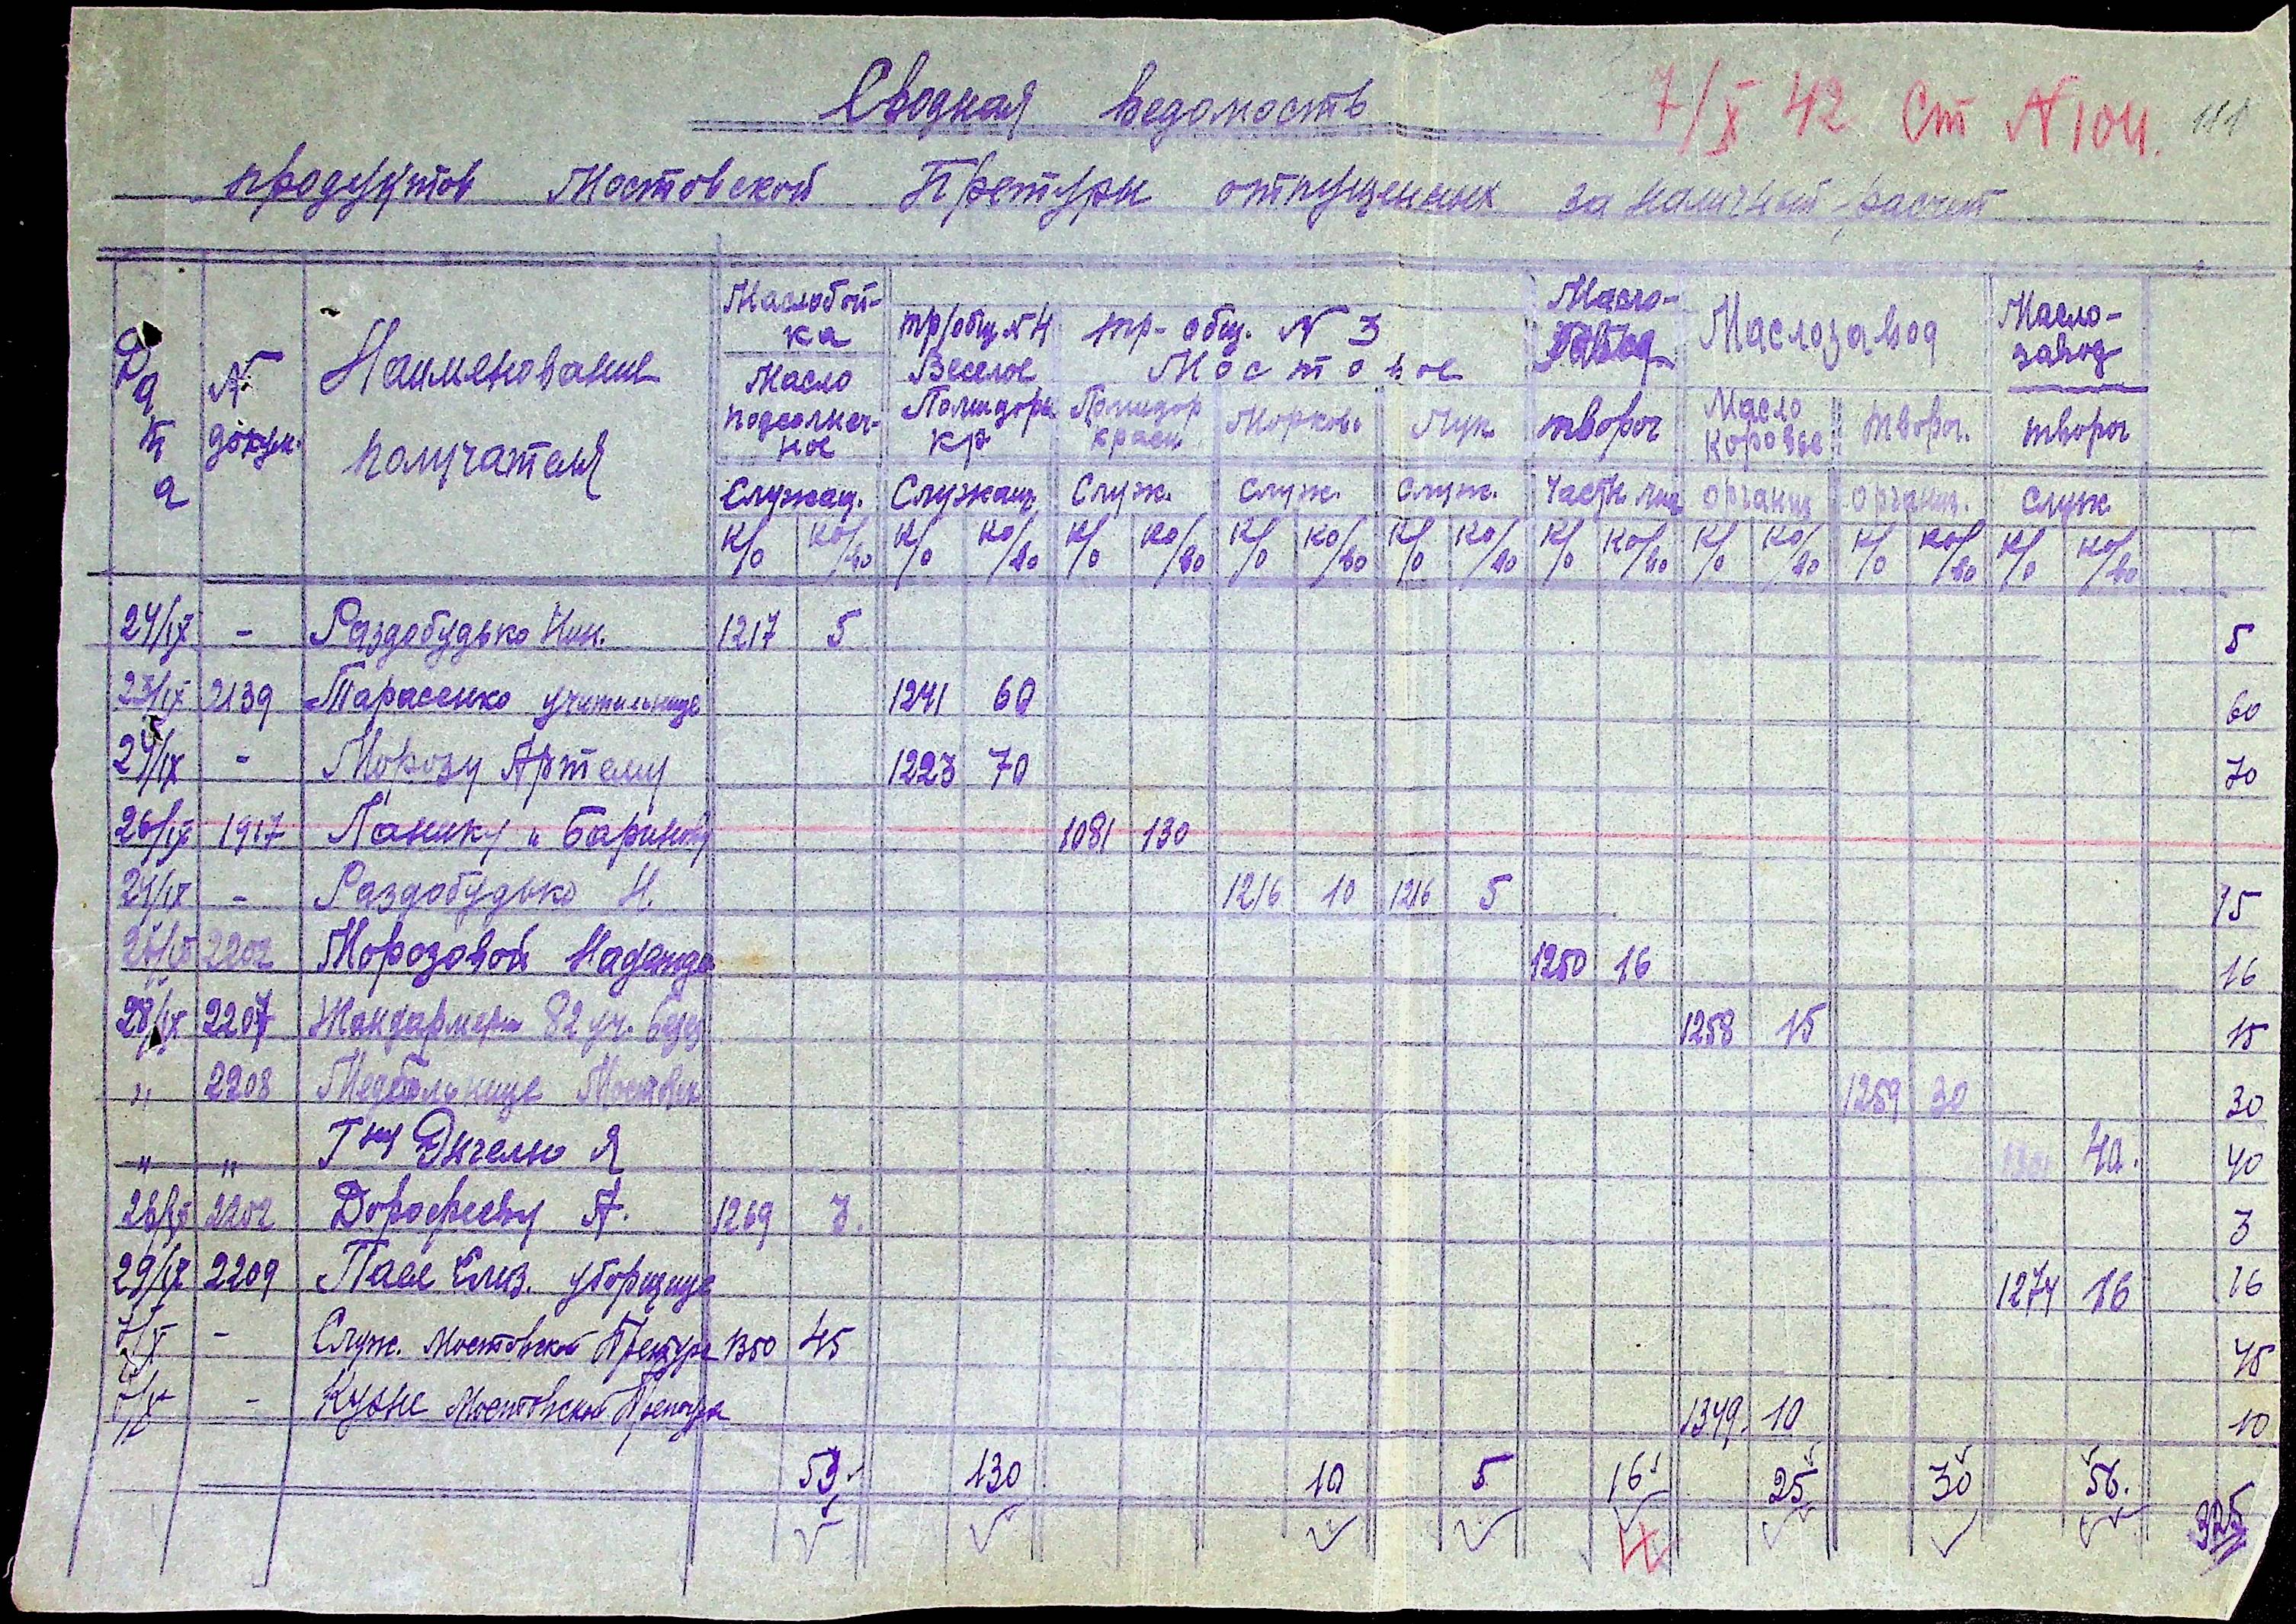 Сводная ведомость
7/X 42 Ст N104. 111
продуктов Мостовской Претуры отпущенных за наличный расчет
Дата
N докум.
Наименование получателя
Маслобой-ка
Масло подсолнеч-ное
Служащ.
к/о ко/во
тр/общ N4
Веселое
Помидоры кр
Служащ.
к/о ко/во
тр- общ. N 3
Мостовое
Помидор красн
Служ.
к/о ко/во
Морковь
Служ.
к/о ко/во
Лук
Служ.
к/о ко/во
Масло-завод
творог
Частн. лиц
к/о ко/во
Маслозавод
Масло коровье
организ
к/о ко/во
творог.
организ.
к/о ко/во
Масло-завод
творог
служ
к/о ко/во
24/IX - Раздобудько Ник. 1217 5 5
23/IX 2139 Тарасенко учительнице 1241 60 60
24/IX - Морозу Артему 1223 70 70
26/IX 1917 Ланику и Баринову 1081 130
24/IX - Раздобудько Н. 1216 10 1216 5 15
2202 Морозовой Надежде 1250 16 16
28/IX 2207 Жандармерии 82 уч. 1258 15 15
" 2208 Медбольнице Мостовск 1259 30 30
" " Г-ну Энгелю Я 40. 40
26/IX 2202 Дорофееву А. 1269 3. 3
29/IX 2209 Паел Елиз. уборщице 1274 16 16
7/X - Служ. Мостовской Претуре 1350 45 45
7/X - Кухне Мостовской Претуре 1349. 10 10
53 130 10 5 16 25 30 56. 325